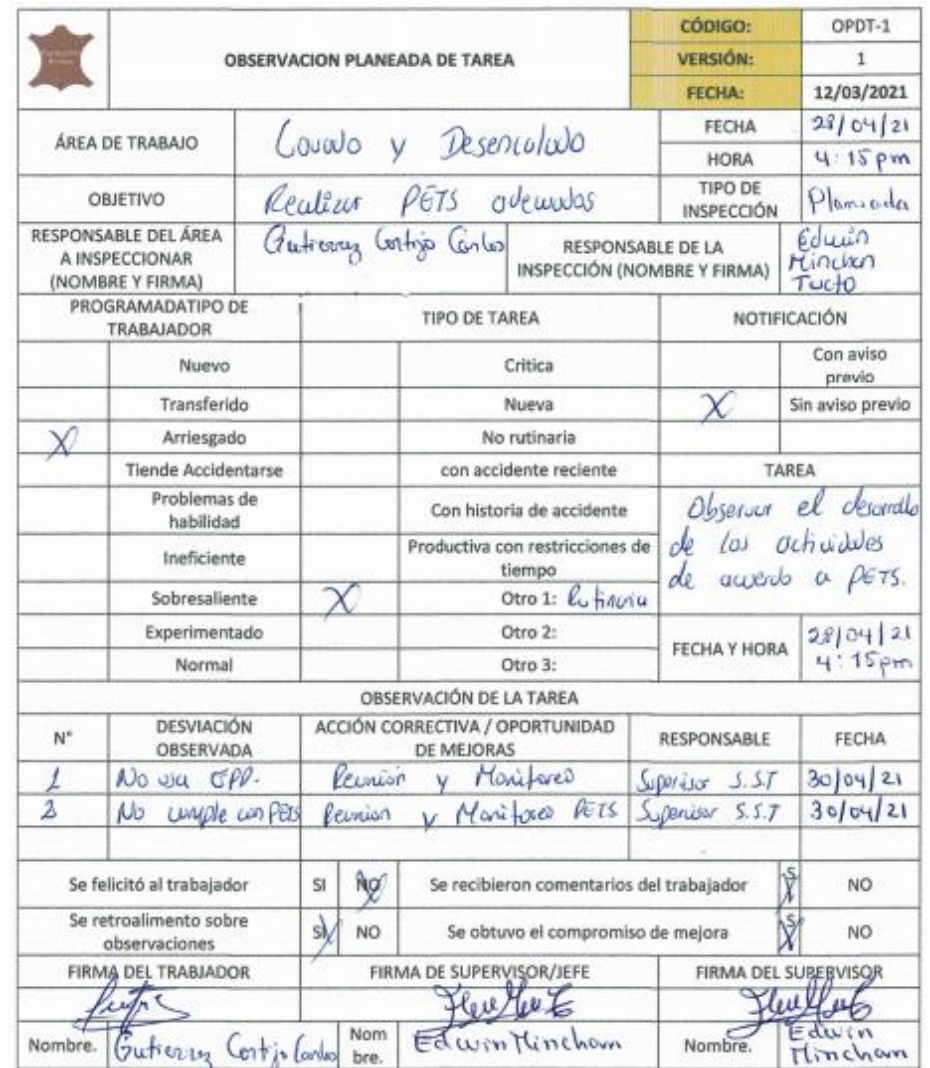 OBSERVACION PLANEADA DE TAREA
CÓDIGO: OPDT-1
VERSIÓN: 1
FECHA: 12/03/2021
ÁREA DE TRABAJO Lavado y Desencalado
FECHA 28/04/21
HORA 4:15 pm
OBJETIVO Realizar PETS adecuados
TIPO DE INSPECCIÓN Planeada
RESPONSABLE DEL ÁREA A INSPECCIONAR (NOMBRE Y FIRMA) Gutierrez Cortijo Carlos
RESPONSABLE DE LA INSPECCIÓN (NOMBRE Y FIRMA) Edwin Minchan Tucto
PROGRAMADATIPO DE TRABAJADOR TIPO DE TAREA NOTIFICACIÓN
Nuevo Critica Con aviso previo
Transferido Nueva X Sin aviso previo
X Arriesgado No rutinaria
Tiende Accidentarse con accidente reciente TAREA
Problemas de habilidad Con historia de accidente
Observar el desarrollo
de las actividades
de acuerdo a PETS.
Ineficiente Productiva con restricciones de tiempo
Sobresaliente X Otro 1: Rutinaria
Experimentado Otro 2:
FECHA Y HORA 28/04/21 4:15pm
Normal Otro 3:
OBSERVACIÓN DE LA TAREA
N° DESVIACIÓN OBSERVADA ACCIÓN CORRECTIVA / OPORTUNIDAD DE MEJORAS RESPONSABLE FECHA
1 No usa EPP. Reunion y Monitoreo Supervisor S.S.T 30/04/21
2 No cumple con PETS Reunion y Monitoreo PETS Supervisor S.S.T 30/04/21
Se felicitó al trabajador SI NO Se recibieron comentarios del trabajador S NO
Se retroalimento sobre observaciones SI NO Se obtuvo el compromiso de mejora S NO
FIRMA DEL TRABJADOR FIRMA DE SUPERVISOR/JEFE FIRMA DEL SUPERVISOR
Nombre. Gutierrez Cortijo Carlos Nombre. Edwin Mincham Nombre. Edwin Mincham